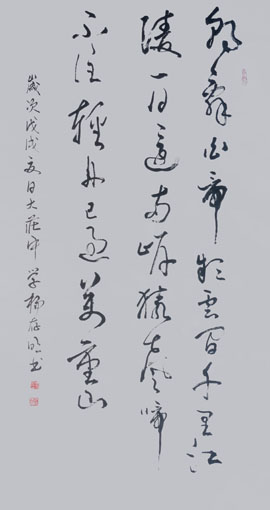 朝辭白帝彩雲間千里江
陵一日還兩岸猿聲啼
不住輕舟已過萬重山
歲次戊戌夏日大莊中学楊存明书